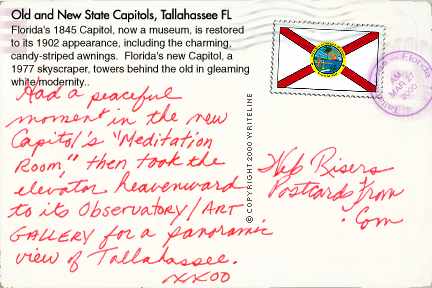 Old and New State Capitols, Tallahassee FL
Florida's 1845 Capitol, now a museum, is restored
to its 1902 appearance, including the charming,
candy-striped awnings. Florida's new Capitol, a
1977 skyscraper, towers behind the old in gleaming
white/modernity..
Had a peaceful
moment in the new
Capitol's "Meditation
Room," then took the
elevator heavenward
to its OBSERVATORY/ART
GALLERY for a panoramic
view of Tallahassee.
XXOO
© COPYRIGHT 2000 WRITELINE
Florida
AM
MAR 21
2000
Web Risers
Postcards From
.Com